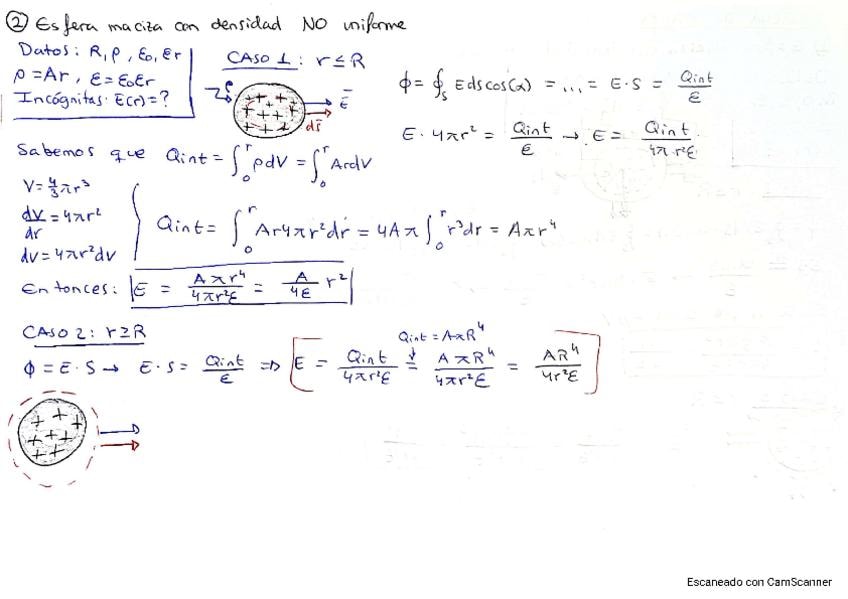 ② Esfera maciza con densidad NO uniforme
Datos: R, ρ, ε₀, εr
ρ = Ar, ε = ε₀εr
Incógnitas: E(r) = ?
CASO 1: r ≤ R
E⃗
ds⃗
ϕ = ∮s E ds cos(α) = ... = E · S = Qint/ε
E · 4πr² = Qint/ε → E = Qint/4πr²ε
Sabemos que Qint = ∫₀ʳ ρdV = ∫₀ʳ ArdV
V = 4/3 πr³
dv/dr = 4πr²
dv = 4πr²dv
Qint = ∫₀ʳ Ar4πr²dr = 4Aπ ∫₀ʳ r³dr = Aπr⁴
Entonces: E = Aπr⁴/4πr²ε = A/4ε r²
CASO 2: r ≥ R
Qint = AπR⁴
ϕ = E · S → E · S = Qint/ε ⇒ E = Qint/4πr²ε = AπR⁴/4πr²ε = AR⁴/4r²ε
Escaneado con CamScanner